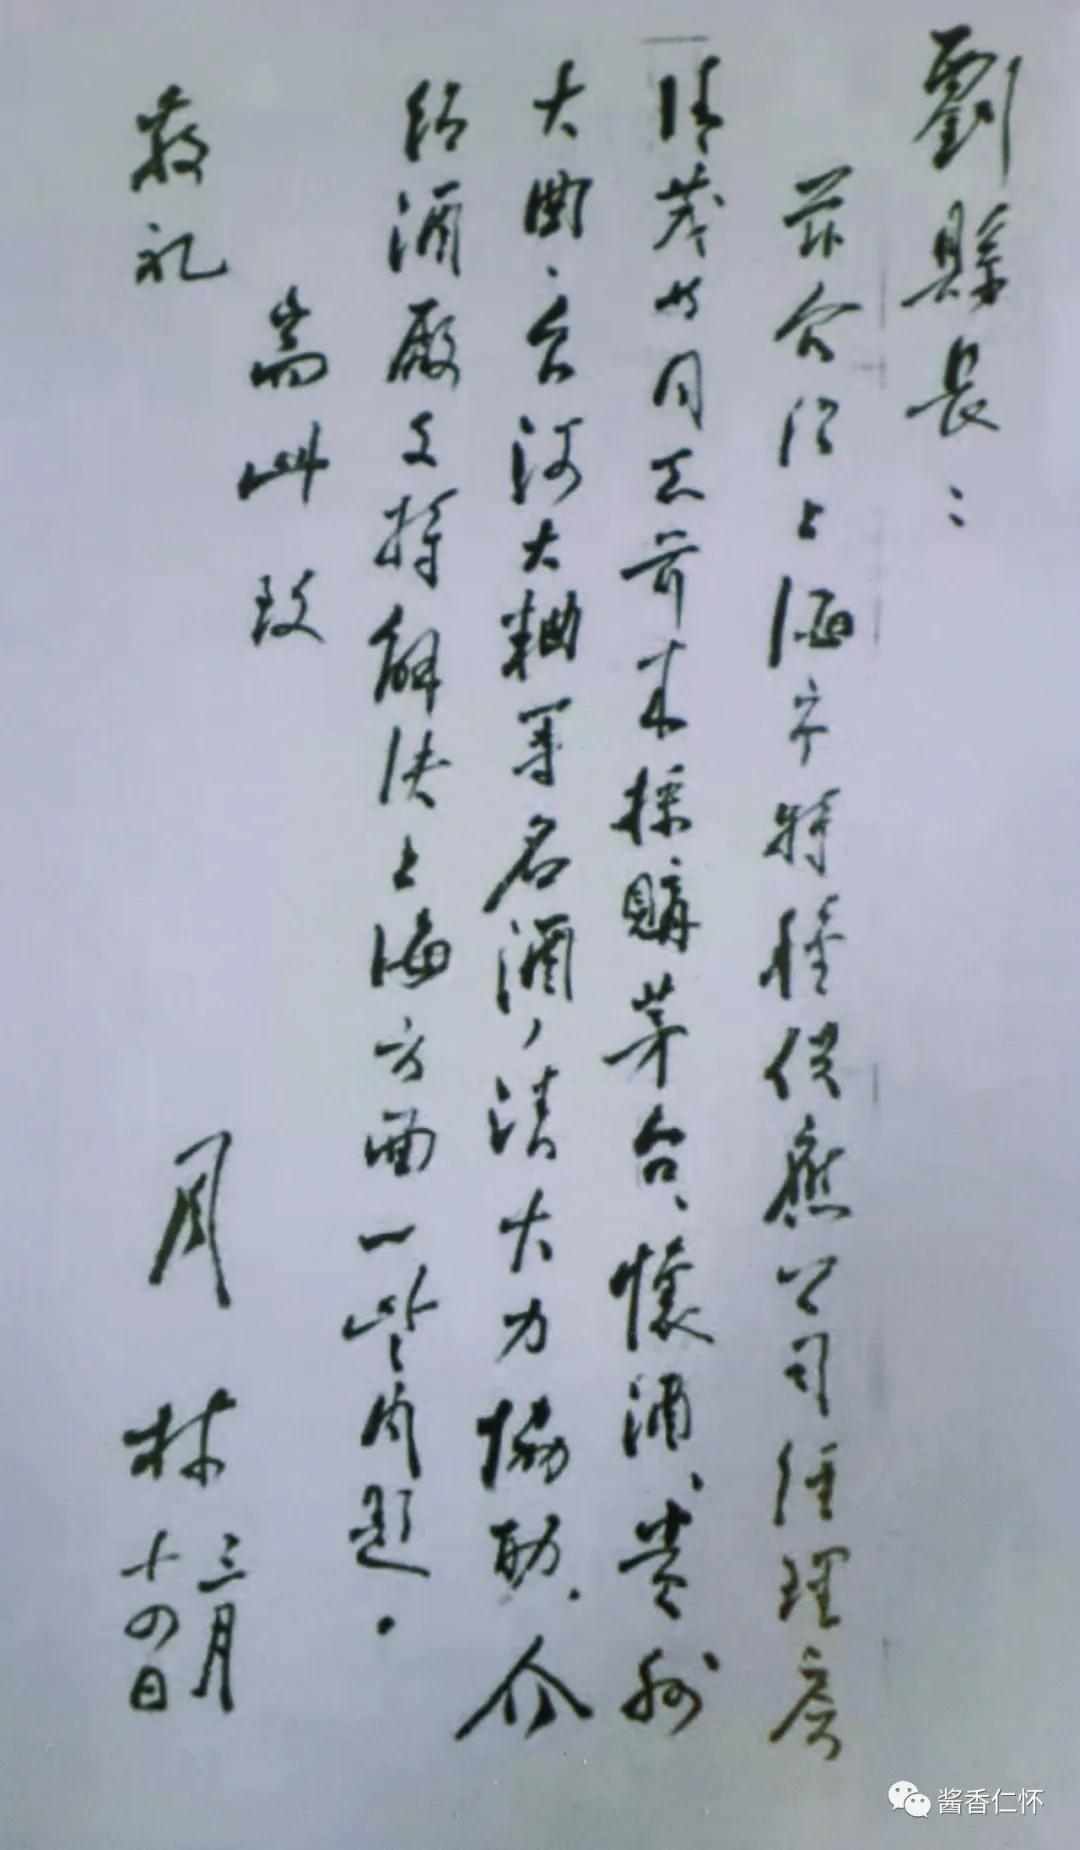 劉縣長：
茲介绍上海市特種供應公司经理詹
清茂等同志前来採購茅台、懷酒、贵州
大曲、台河大粬等名酒，请大力協助。介
绍酒廠支持解决上海方面一些问题。
耑此致
敬礼
周林
三月
十四日
酱香仁怀